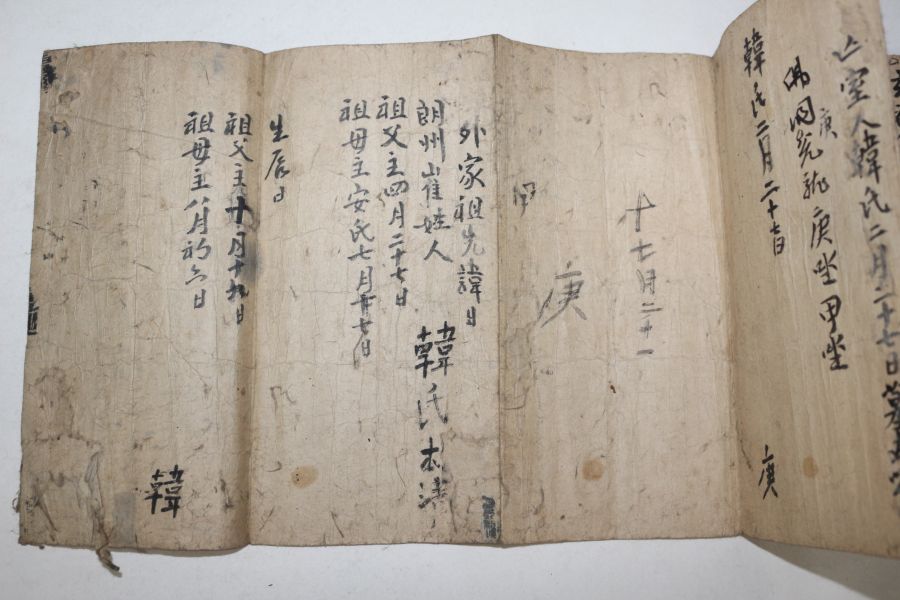 亡室人韓氏二月二十七日墓
庚
佛國寺 庚坐甲坐
韓氏二月二十七日
庚
十七月二十一
庚
甲
外家祖先諱日
朗州崔姓人
韓氏本淸
祖父主四月二十七日
祖母主安氏七月廿七日
生辰日
祖父主十月十九日
祖母主八月初六日
韓